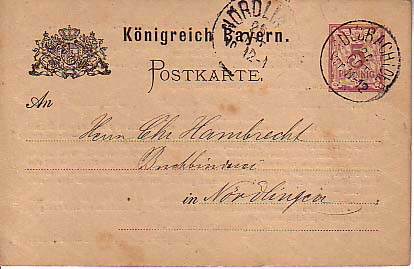 NÖRDLIN
12-1
Königreich Bayern.
POSTKARTE.
5
PFENNIG
An
Herrn Chr Hambrecht
Buchbinderei
in Nördlingen